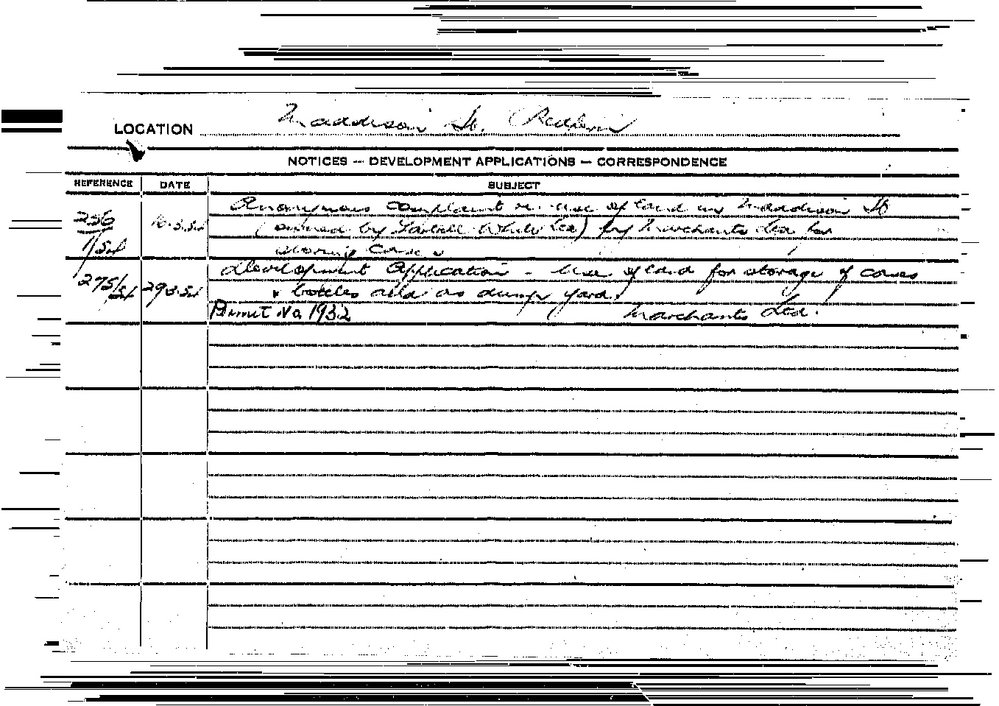 LOCATION Maddison St. Redfern
NOTICES — DEVELOPMENT APPLICATIONS — CORRESPONDENCE
REFERENCE DATE SUBJECT
256 16.3.54 Anonymous complaint re. use of land in Maddison St
1/54 (owned by White Ltd) by Marchants Ltd for
storing Cases
275/54 29.3.54 Development Application - Use of land for storage of cases
& bottles and as dump yard.
Permit No. 1932 Marchants Ltd.